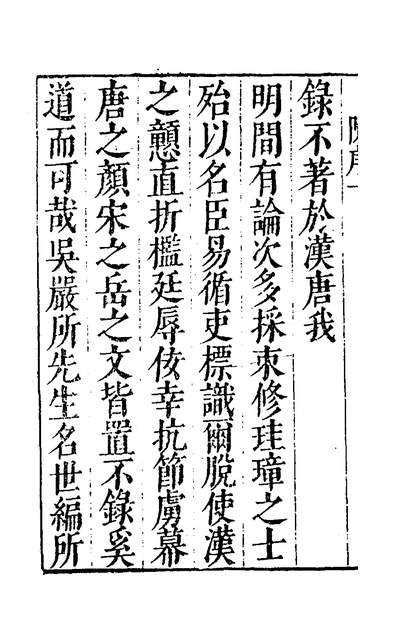 陳序一
錄不著於漢唐我
明間有論次多採束修珪璋之士
殆以名臣易循吏標識爾脫使漢
之戇直折檻廷辱佞幸抗節虜幕
唐之顏宋之岳之文皆置不錄奚
道而可哉吳嚴所先生名世編所